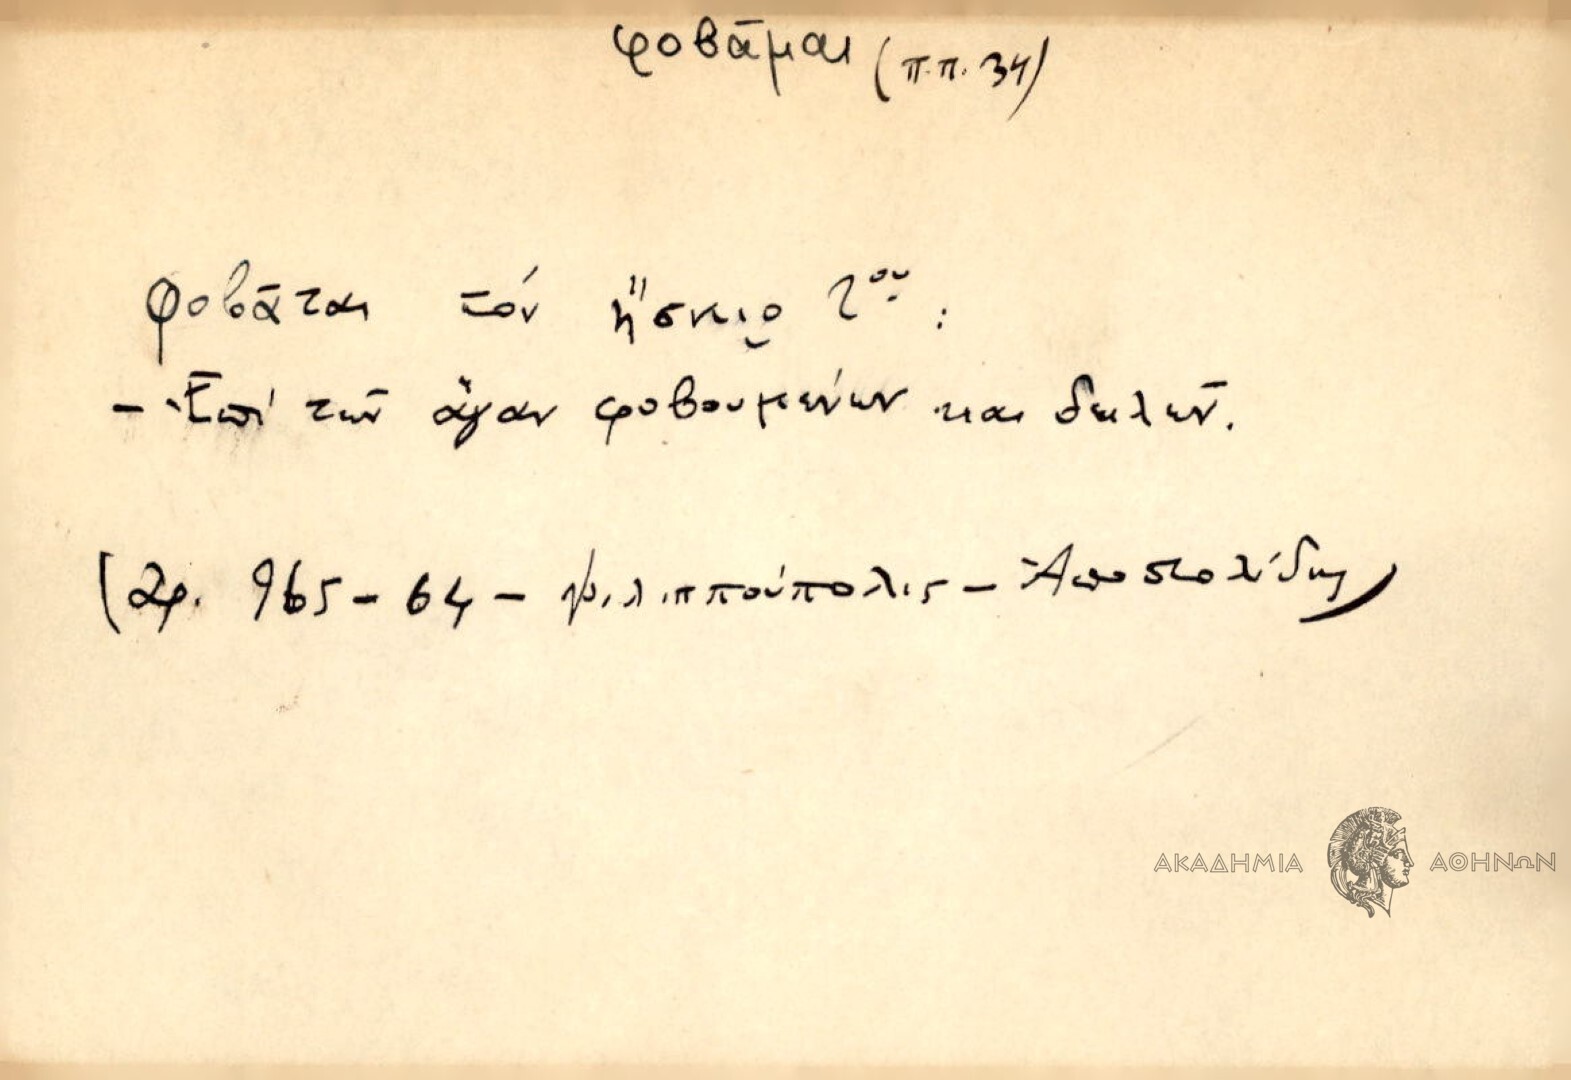 φοβᾶμαι (π.π. 34)
Φοβᾶται τὸν ἥσκιο του :
- Ἐπὶ τῶν ἄγαν φοβουμένων και δειλῶν.
(Ἀρ. 965 - 64 - Φιλιππούπολις - Ἀποστολίδης)
ΑΚΑΔΗΜΙΑ ΑΘΗΝΩΝ